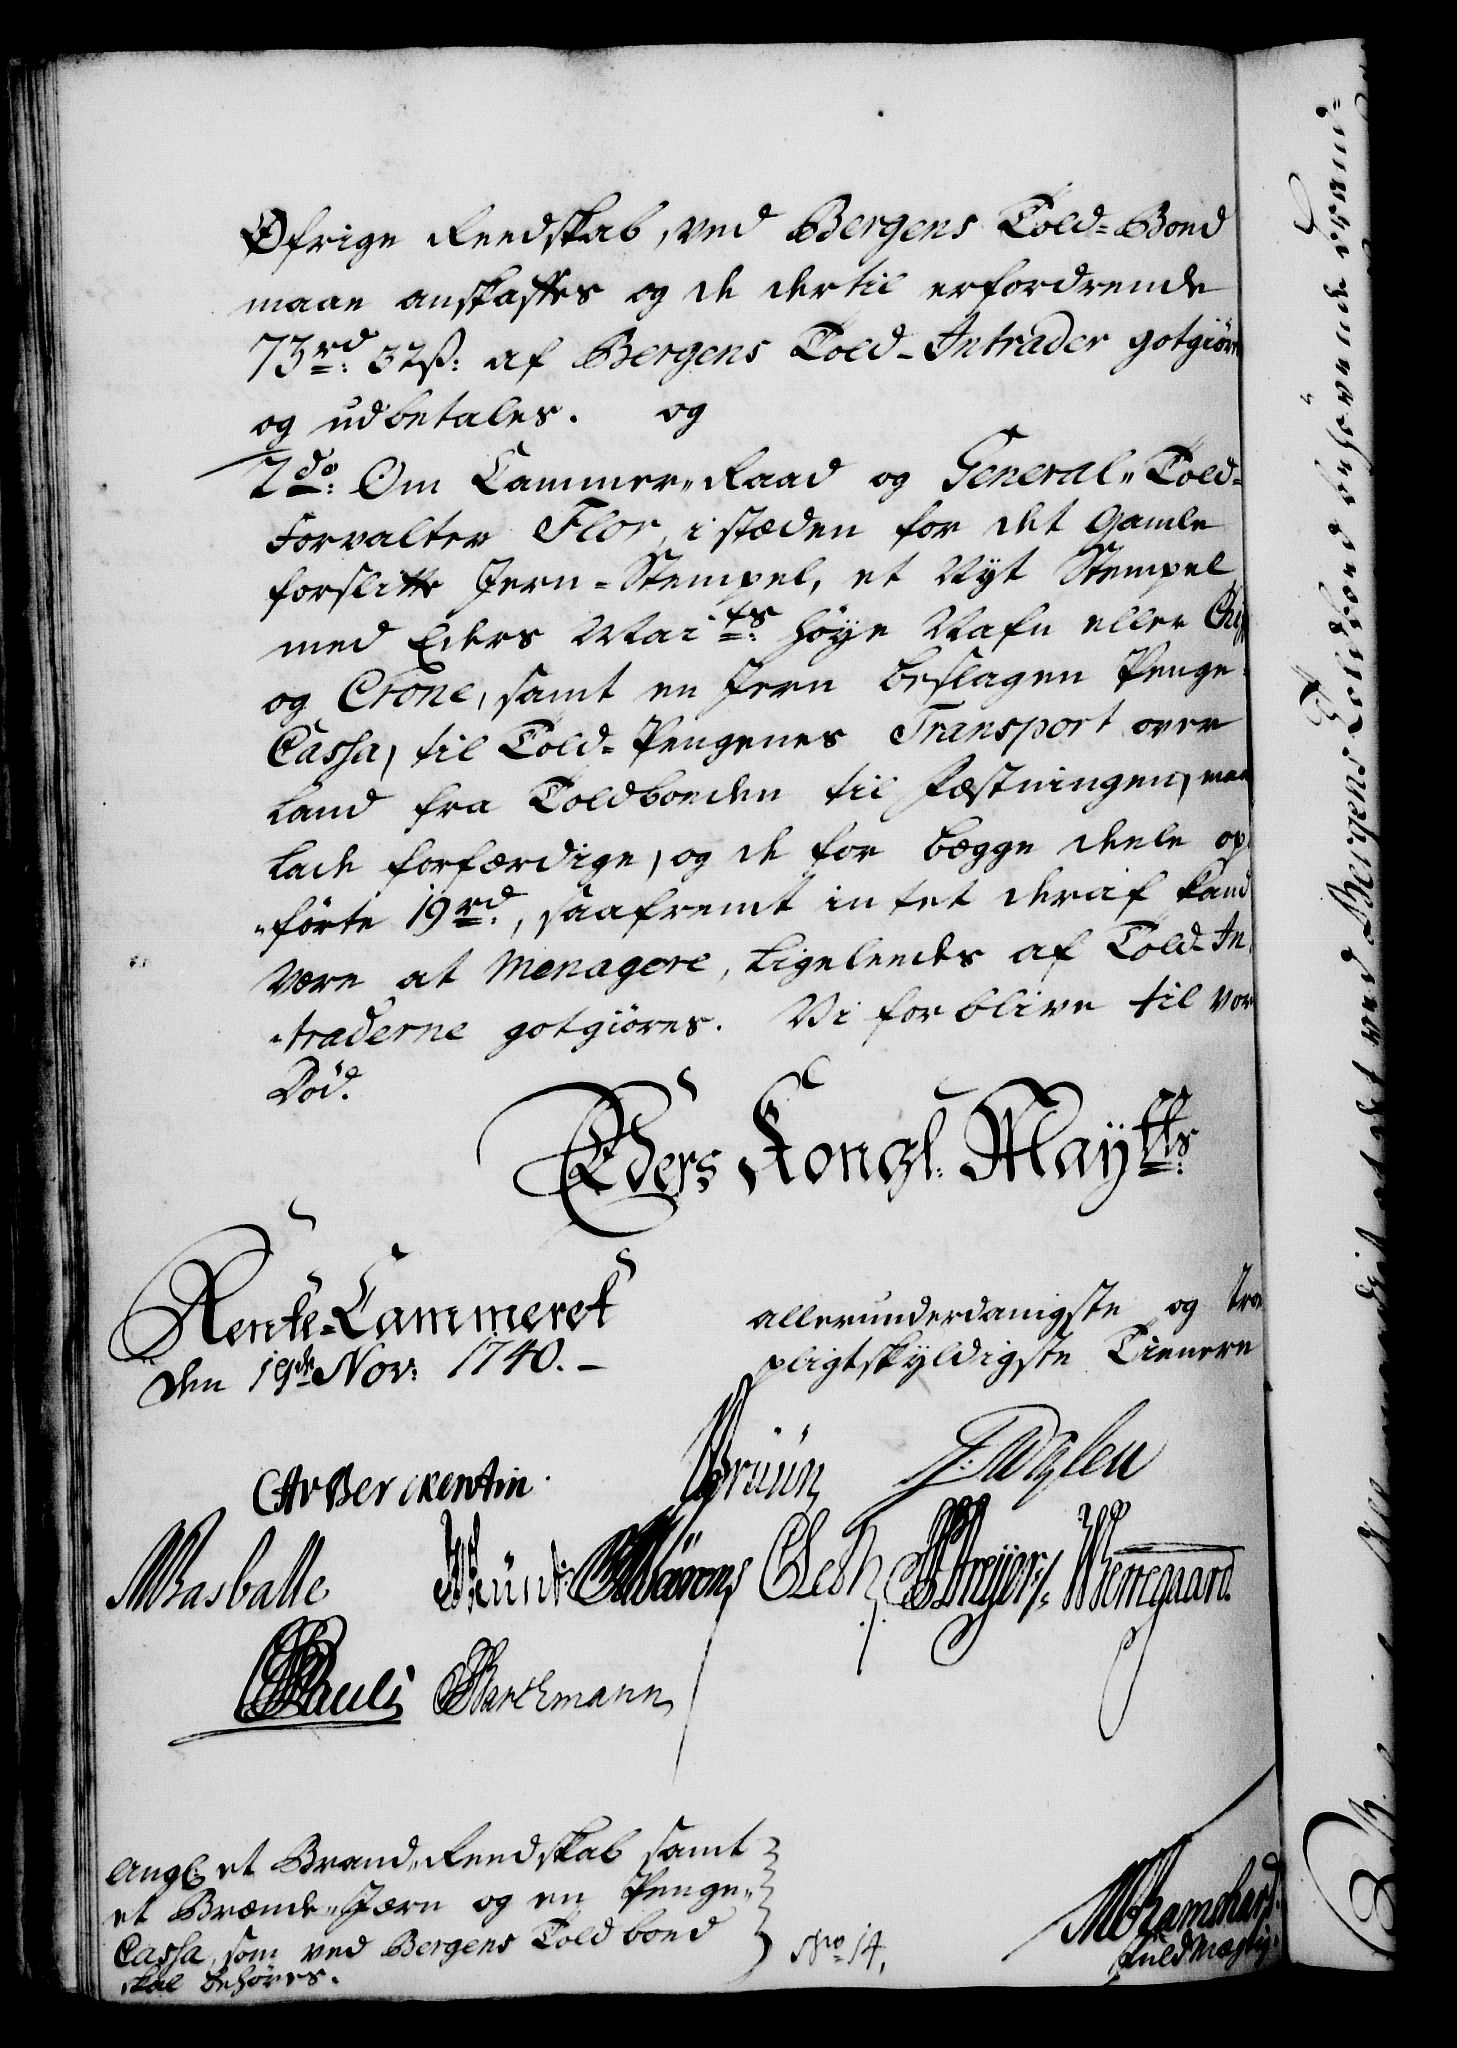 Øfrige Reedskab, ved Bergens Told=Boed
maae anskaffes og de dertil erfordrende
73rd: 32ß: af Bergens Told-Intrader gotgiöres
og udbetales. og
2do: Om Cammer-Raad og General-Told-
Forvalter Flor, i stæden for det gamle
forslitte Jern-Stempel, et Nyt Stempel
med Eders Maits: høye Nafn eller
og Crone, samt en Jern beslagen Penge-
Cassa, til Told-Pengenes Transport over
Land fra Toldboeden til Fæstningen, maa
lade forfærdige, og de for begge deele op-
-förte 19rd:, saafremt intet deraf kand
være at menagere, ligeledes af Told-In-
-traderne gotgiöres. Vi forblive til vor
Död.
Eders Kongl: Mayts:
Rente-Cammeret
den 19de Nov: 1740.-
allerunderdanigste og troe
pligtskyldigste Tienere
CAvBerckentin.
Bruün
Rasballe
Pauli
Barthmann
Angl: et Brand-Reedskab samt
et Brænde-Jærn og en Penge-
Cassa, som ved Bergens Toldboed
skal behøves.
No 14.
Ramshart
Fuldmægtig
ved Bergens Toldboed behøvende Brand=